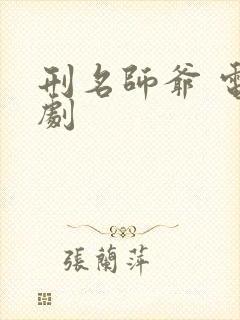 刑名師爺 電
劇
張蘭萍